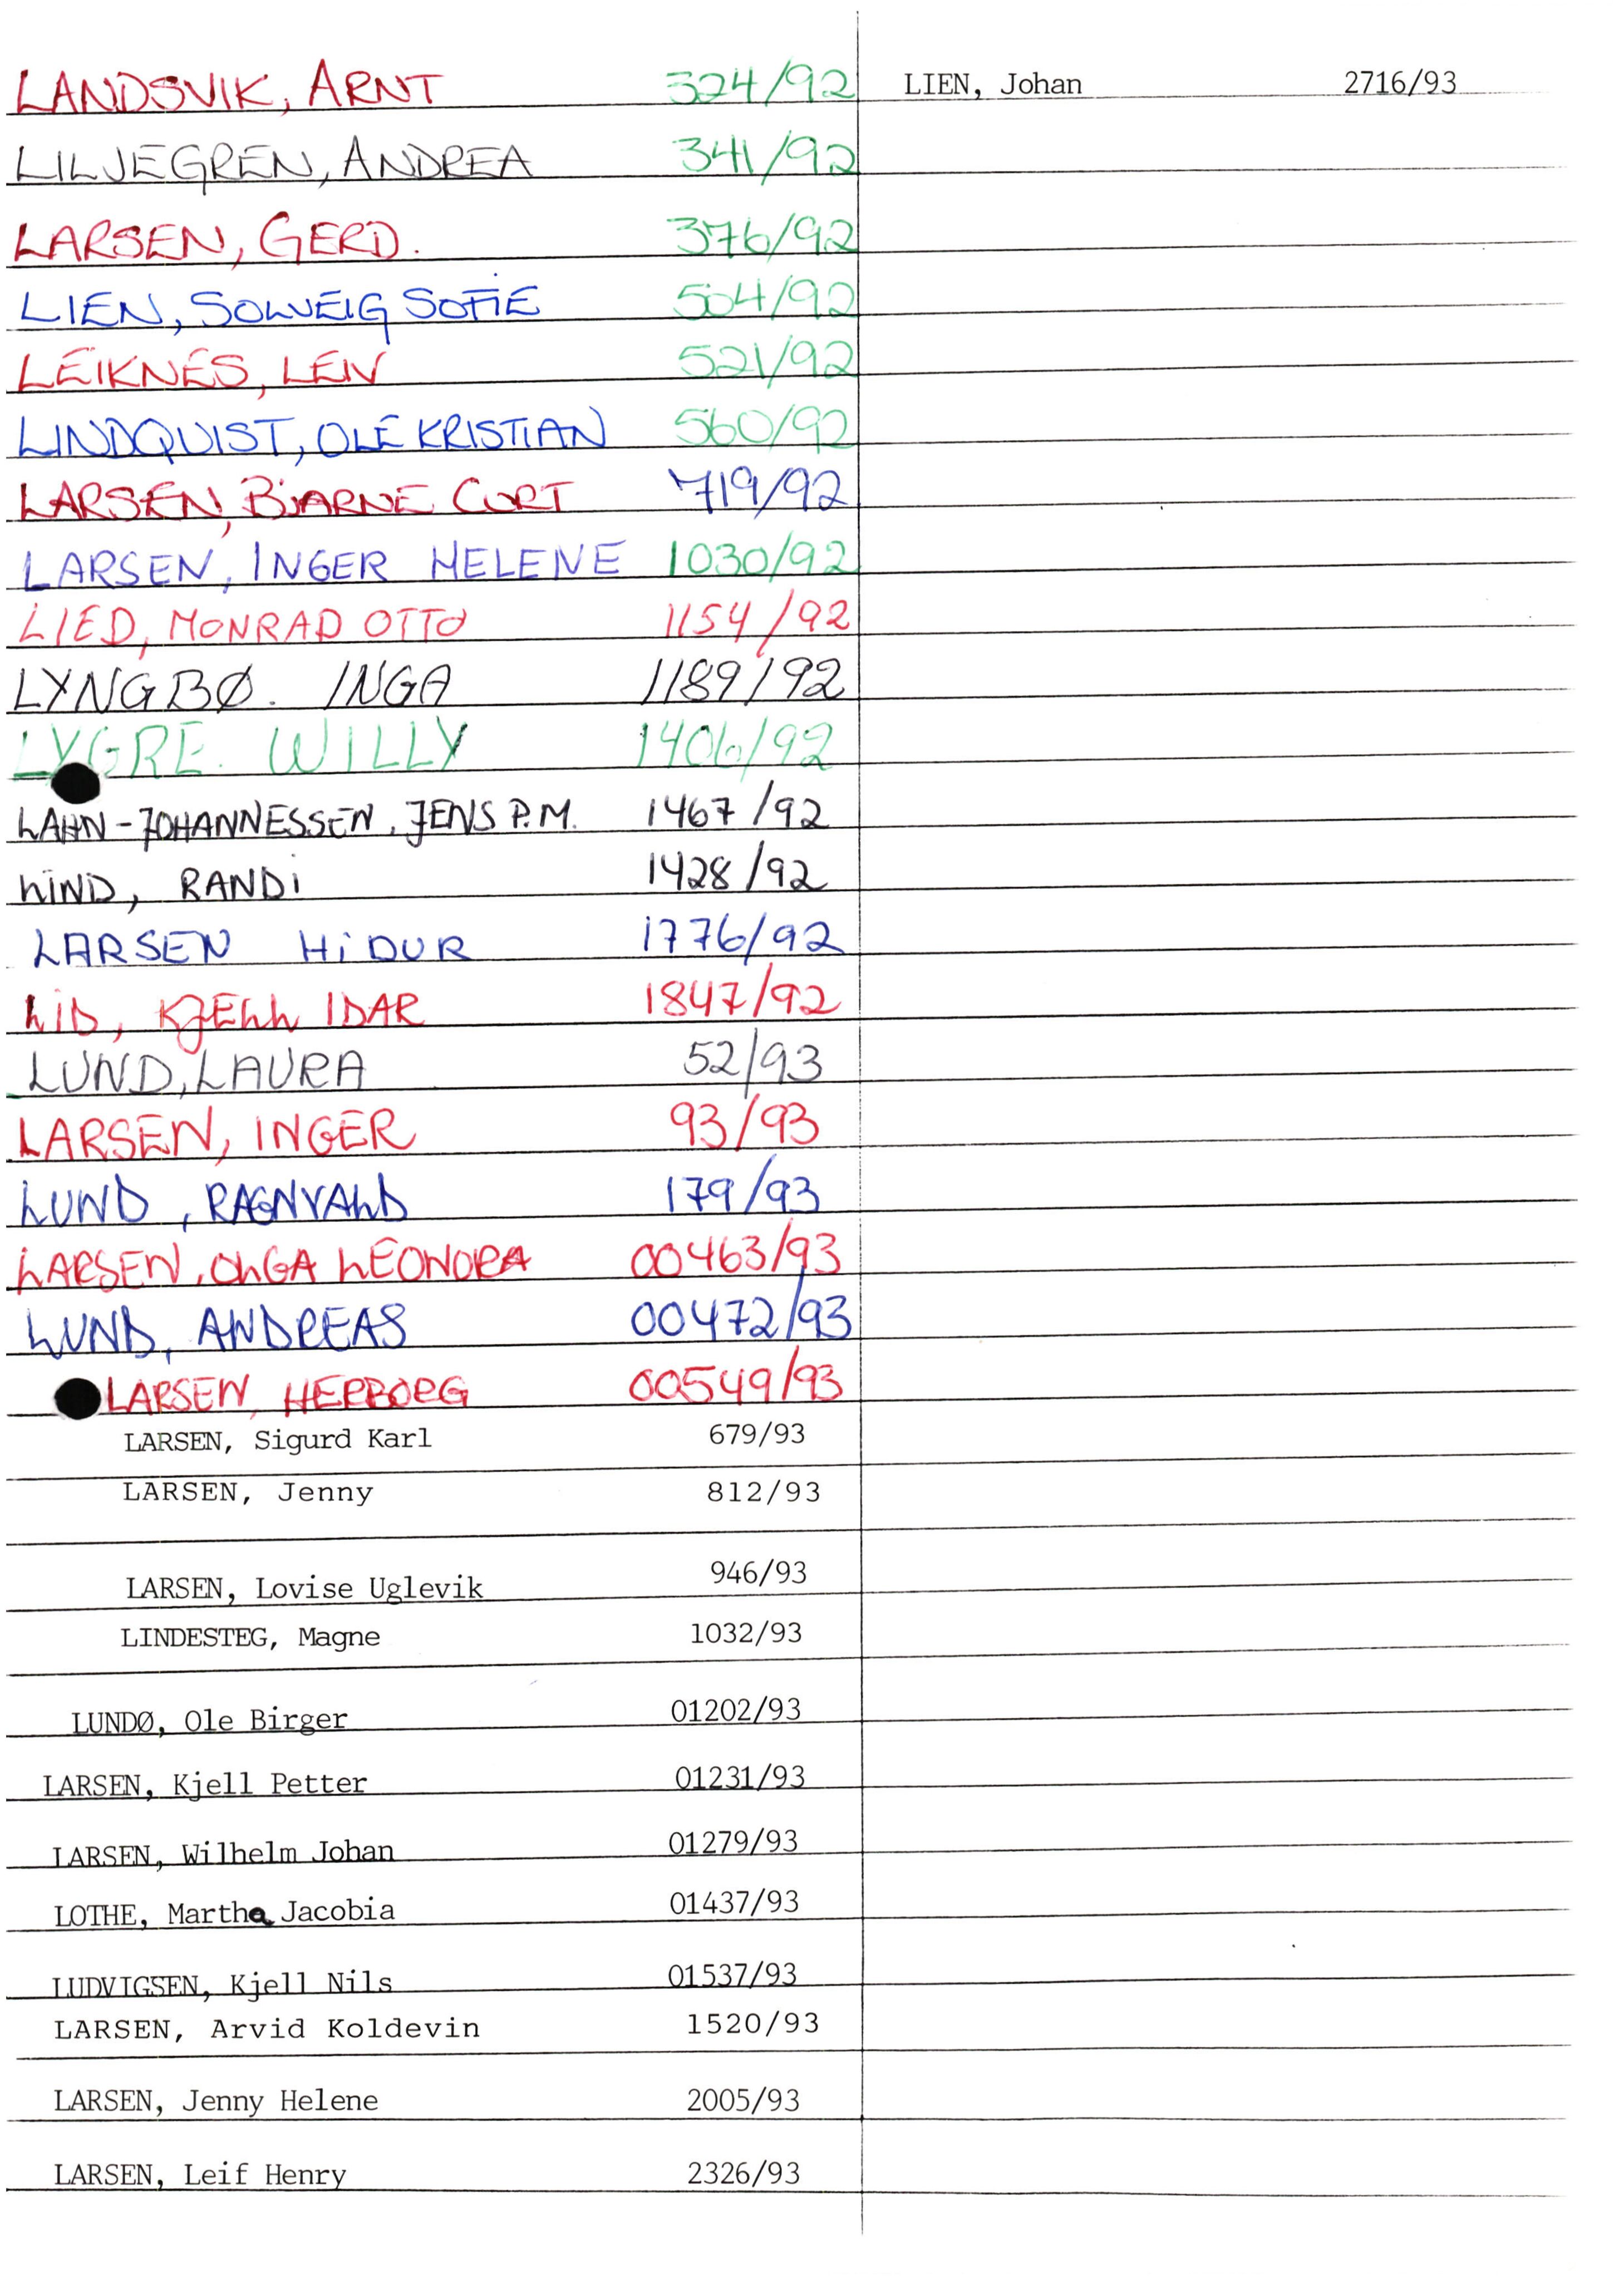 LANDSVIK, ARNT 324/92
LILJEGREN, ANDREA 341/92
LARSEN, GERD. 376/92
LIEN, SOLVEIG SOFIE 504/92
LEIKNES, LEIV 521/92
LINDQUIST, OLE KRISTIAN 560/92
LARSEN, BJARNE CURT 719/92
LARSEN, INGER HELENE 1030/92
LIED, MONRAD OTTO 1154/92
LYNGBØ. INGA 1189/92
LYGRE. WILLY 1406/92
LAHN-JOHANNESSEN, JENS P.M. 1467/92
LIND, RANDI 1428/92
LARSEN HIDUR 1776/92
LID, KJELL IDAR 1847/92
LUND, LAURA 52/93
LARSEN, INGER 93/93
LUND, RAGNVALD 179/93
LARSEN, OLGA LEONORA 00463/93
LUND, ANDREAS 00472/93
LARSEN, HERBORG 00549/93
LARSEN, Sigurd Karl 679/93
LARSEN, Jenny 812/93
LARSEN, Lovise Uglevik 946/93
LINDESTEG, Magne 1032/93
LUNDØ, Ole Birger 01202/93
LARSEN, Kjell Petter 01231/93
LARSEN, Wilhelm Johan 01279/93
LOTHE, Martha Jacobia 01437/93
LUDVIGSEN, Kjell Nils 01537/93
LARSEN, Arvid Koldevin 1520/93
LARSEN, Jenny Helene 2005/93
LARSEN, Leif Henry 2326/93
LIEN, Johan 2716/93